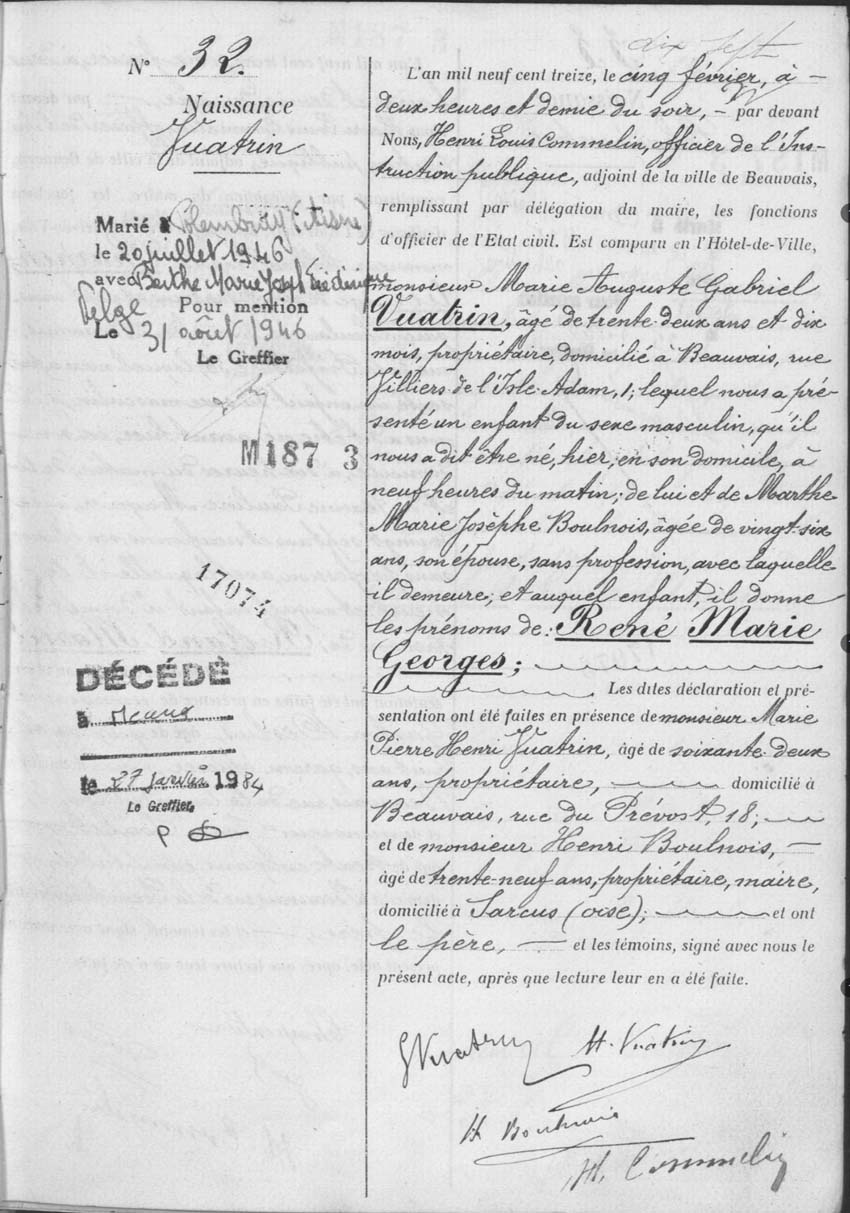 dix sept
N° 32.
Naissance
Vuatrin
Marié à
le 20 juillet 1946
avec Berthe Marie Joseph
Pour mention
Le 31 août 1946
Le Greffier
M187 3
17074
DÉCÉDÉ
à
le 27 janvier 1984
Le Greffier,
L'an mil neuf cent treize, le cinq février, à —
deux heures et demie du soir, — par devant
Nous, Henri Louis Commelin, officier de l'Ins-
truction publique, adjoint de la ville de Beauvais,
remplissant par délégation du maire, les fonctions
d'officier de l'Etat civil. Est comparu en l'Hôtel-de-Ville,
monsieur Marie Auguste Gabriel
Vuatrin, âgé de trente-deux ans et dix
mois, propriétaire, domicilié à Beauvais, rue
Villiers-de-l'Isle-Adam, 1; lequel nous a pré-
senté un enfant du sexe masculin, qu'il
nous a dit être né, hier, en son domicile, à
neuf heures du matin; de lui et de Marthe
Marie Josèphe Boulnois, âgée de vingt-six
ans, son épouse, sans profession, avec laquelle
il demeure; et auquel enfant, il donne
les prénoms de: René Marie
Georges;
Les dites déclaration et pré-
sentation ont été faites en présence de monsieur Marie
Pierre Henri Vuatrin, âgé de soixante-deux
ans, propriétaire, domicilié à
Beauvais, rue du Prévost, 18;
et de monsieur Henri Boulnois, —
âgé de trente-neuf ans, propriétaire, maire,
domicilié à Sarcus (Oise); et ont
le père, — et les témoins, signé avec nous le
présent acte, après que lecture leur en a été faite.
GVuatrin H. Vuatrin
H Boulnois
H. Commelin